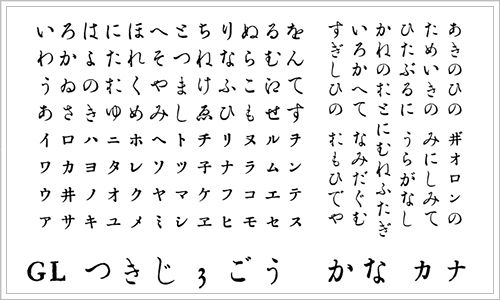 いろはにほへとちりぬるを
わかよたれそつねならむん
うゐのおくやまけふこえて
あさきゆめみしゑひもせす
イロハニホヘトチリヌルヲ
ワカヨタレソツ子ナラムン
ウヰノオクヤマケフコエテ
アサキユメミシヱヒモセス
あきのひの ヰオロンの
ためいきの みにしみて
ひたぶるに うらがなし
かねのおとにむねふたぎ
いろかへて なみだぐむ
すぎしひの おもひでや
GL つきじ3ごう かな カナ